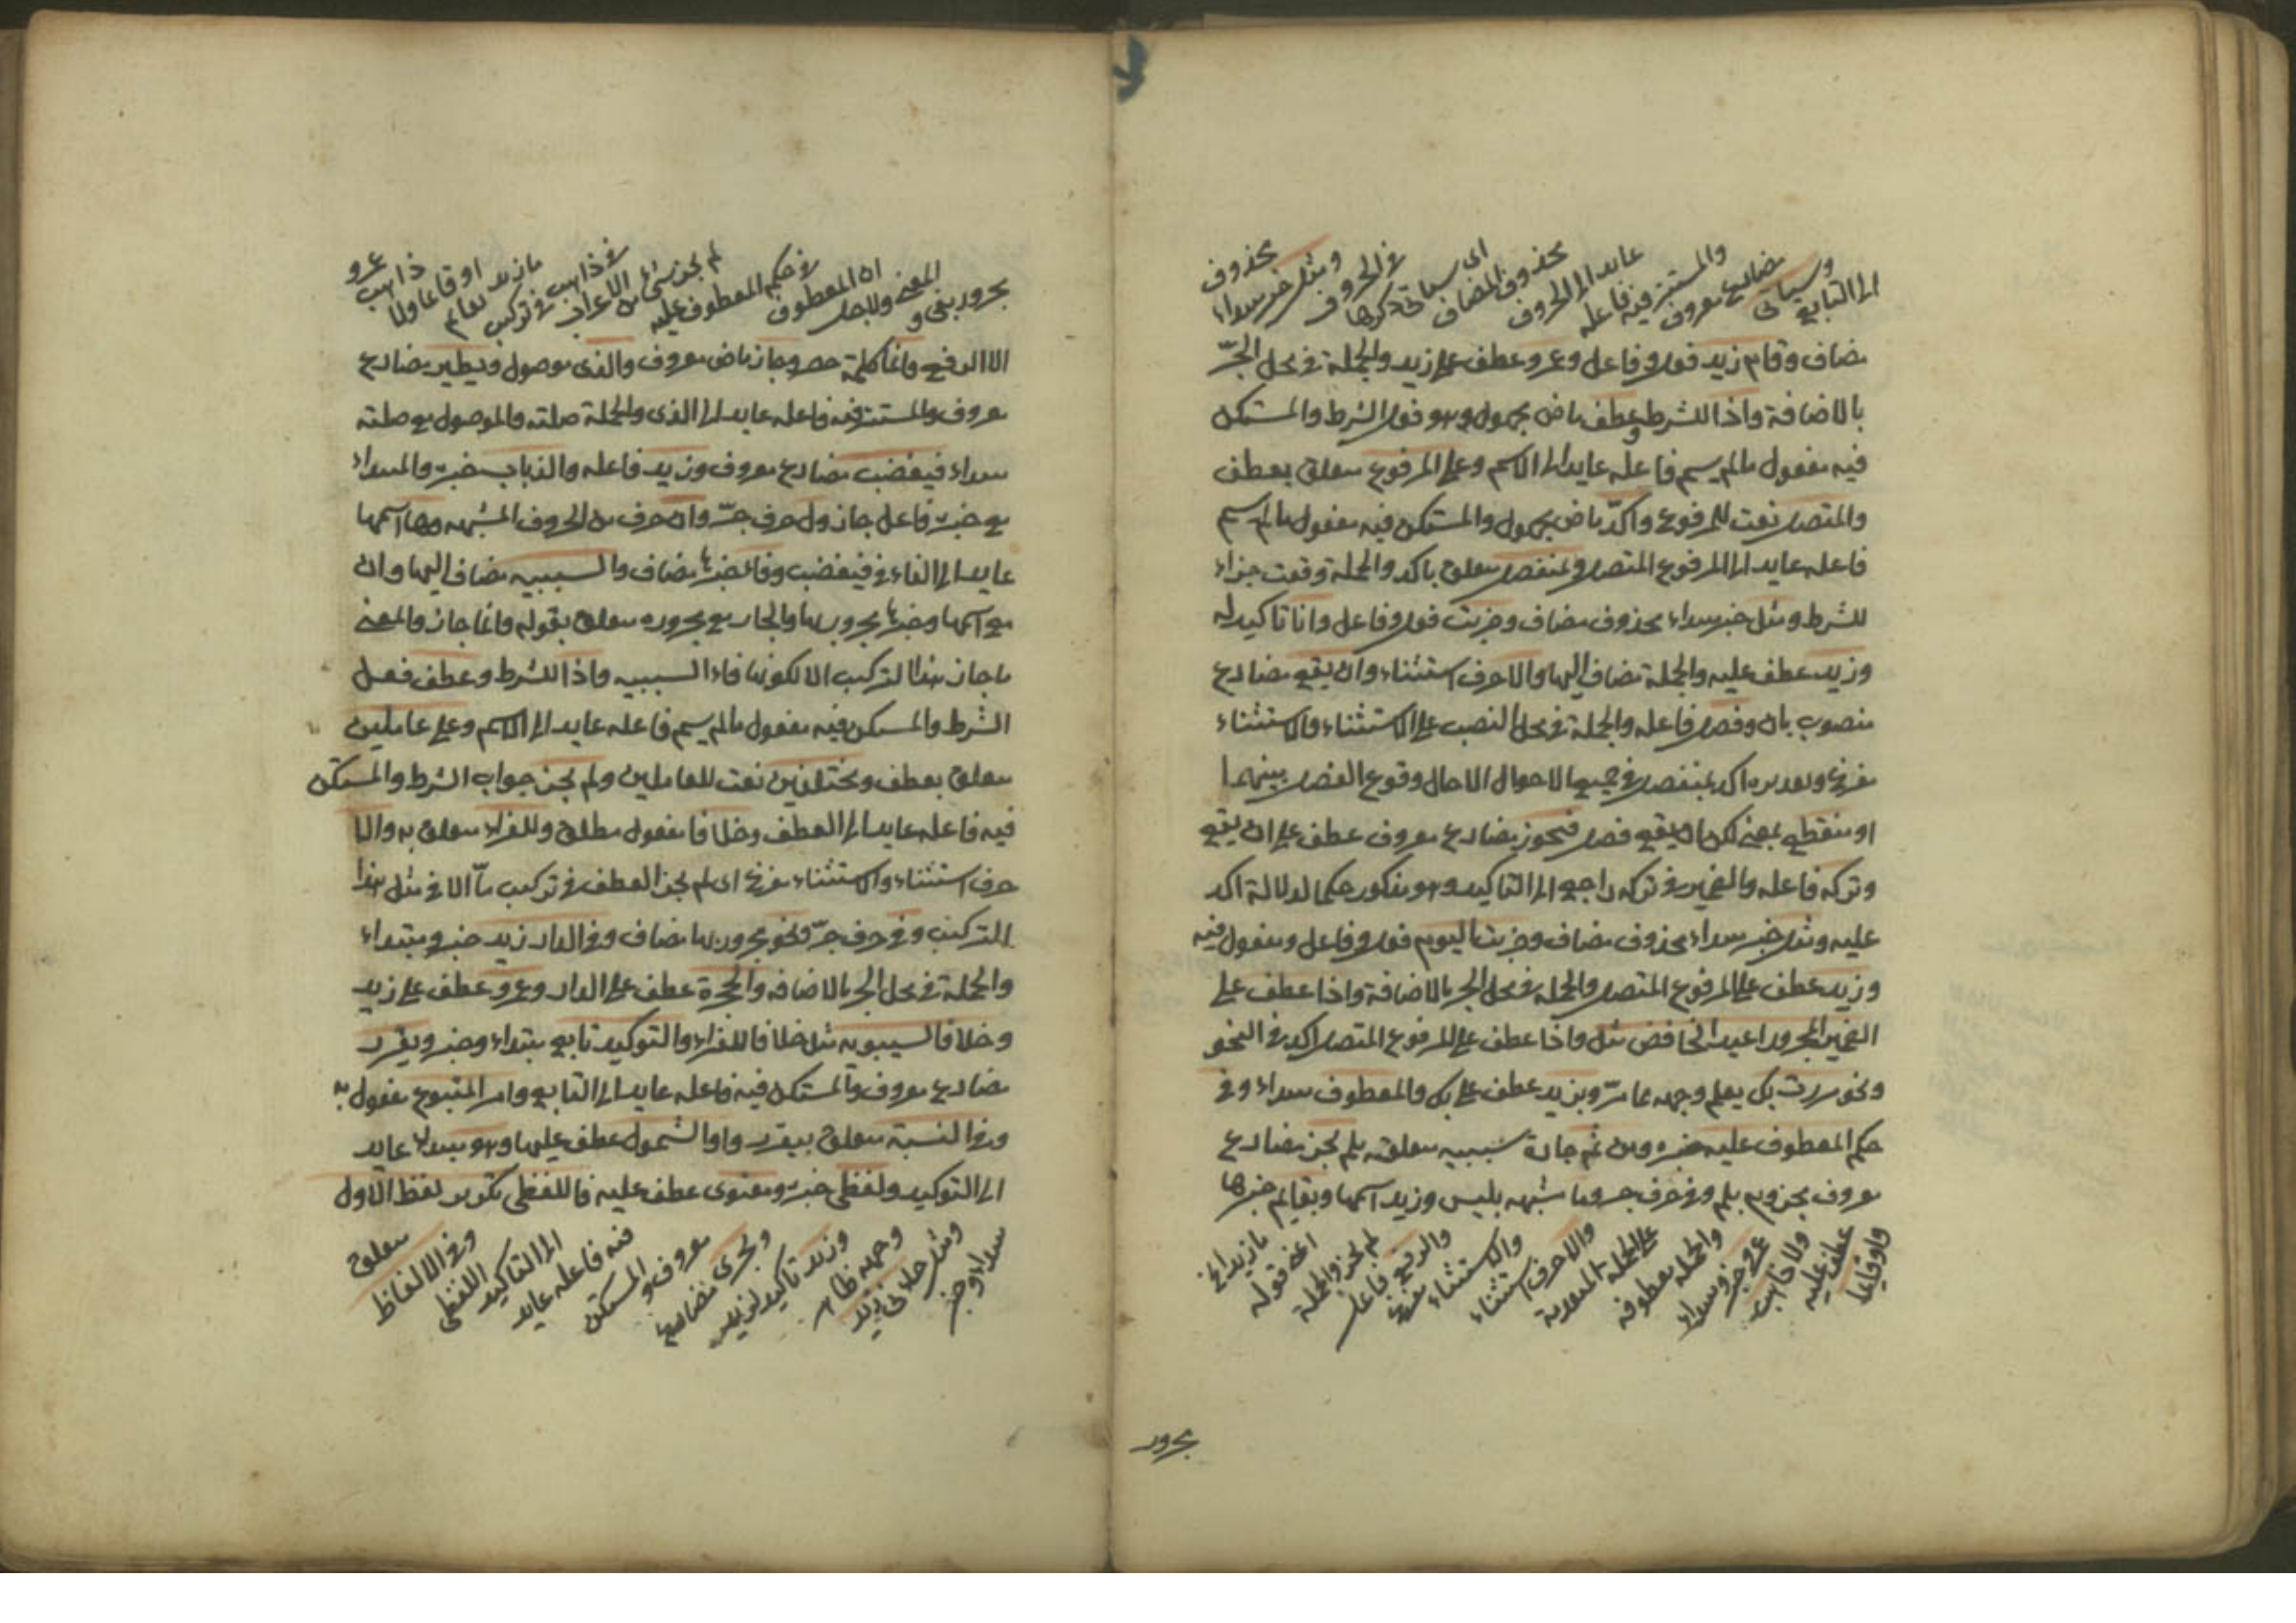 الى التابع وسياتى مضارع معروف والمستتر فيه فاعله عايد الى الحروف محذوف المضاف اى سياتى ذكرها فى الحروف ومثل خبر مبتداء محذوف
مضاف وقام زيد فعل وفاعل وعمرو عطف على زيد والجملة فى محل الجرّ
بالاضافة واذا للشرط وعطف ماض مجهول وهو فعل الشرط والمستكن
فيه مفعول مالم يسم فاعله عايد الى الاسم وعلى المرفوع متعلق بعطف
والمتصل نعت للمرفوع واكّد ماض مجهول والمستكن فيه مفعول مالم يسم
فاعله عايد الى المرفوع المتصل وبمنفصل متعلق باكد والجملة وقعت جزاء
للشرط ومثل خبر مبتداء محذوف مضاف وضربت فعل وفاعل وانا تاكيد له
وزيد عطف عليه والجملة مضاف اليها والا حرف استثناء وان يقع مضارع
منصوب بان وفصل فاعله والجملة فى محل النصب على الاستثناء والاستثناء
مفرغ وتقديره اكد بمنفصل فى جميع الاحوال الا حال وقوع الفصل بينهما
او منقطع بمعنى لكن ان يقع فصل فيجوز مضارع معروف عطف على ان يقع
وتركه فاعله والضمير فى تركه راجع الى التاكيد وهو مذكور حكما لدلالة اكد
عليه ومثل خبر مبتداء محذوف مضاف وضربت اليوم فعل وفاعل ومفعول فيه
وزيد عطف على المرفوع المتصل والجملة فى محل الجر بالاضافة واذا عطف على
الضمير المجرور اعيد الخافض مثل واذا عطف على المرفوع المتصل اكد فى النحو
ونحو مررت بك يعلم وجهه مما مرّ وبزيد عطف على بك والمعطوف مبتداء وفى
حكم المعطوف عليه خبره ومن ثم جارة سببيه متعلقه بلم يجز مضارع
معروف مجزوم بلم وفى حرف جر وما مشبهه بليس وزيد اسمها وبقايم خبرها
واو قاعدا عطف عليه ولا ذاهب عمرو خبر ومبتداء والجملة معطوفه على الجملة المتقدمة والا حرف استثناء والاستثناء مفرغ والرفع فاعل لم يجز والجملة اعنى قوله ما زيد الخ
مجرور
مجرور بفى والمعنى ولاجل ان المعطوف فى حكم المعطوف عليه لم يجز شئ من الاعراب فى ذاهب فى تركيب ما زيد بقايم او قاعدا ولا ذاهب عمرو
الا الرفع وانما كلمة حصر وجاز ماض معروف والذى موصول ويطير مضارع
معروف والمستتر فيه فاعله عايد الى الذى والجملة صلته والموصول مع صلته
مبتداء فيغضب مضارع معروف وزيد فاعله والذباب خبره والمبتداء
مع خبره فاعل جاز ول حرف جرّ وان حرف من الحروف المشبهه وها اسمها
عايد الى الفاء فى فيغضب وفاء خبرها مضاف والسببيه مضاف اليها وان
مع اسمها وخبرها مجرور بها والجار مع مجروره متعلق بقوله وانما جاز والمعنى
ما جاز هذا التركيب الا لكونها فاء السببيه واذا للشرط وعطف فعل
الشرط والمستكن فيه مفعول مالم يسم فاعله عايد الى الاسم وعلى عاملين
متعلق بعطف ومختلفين نعت للعاملين ولم يجز جواب الشرط والمستكن
فيه فاعله عايد الى العطف وخلافا مفعول مطلق وللفراء متعلق به والا
حرف استثناء والاستثناء مفرغ اى لم يجز العطف فى تركيب مّا الا فى مثل هذا
التركيب وفى حرف جرّ ونحو مجرور بها مضاف وفى الدار زيد خبر ومبتداء
والجملة فى محل الجر بالاضافه والحجرة عطف على الدار وعمرو عطف على زيد
وخلافا لسيبويه مثل خلافا للفراء والتوكيد تابع مبتداء وخبر ويقرر
مضارع معروف والمستكن فيه فاعله عايد الى التابع وامر المتبوع مفعول به
وفى النسبة متعلق بيقرر واو الشمول عطف عليها وهو مبتداء عايد
الى التوكيد ولفظى خبره ومعنوى عطف عليه فاللفظى تكرير لفظ الاول
مبتداء وخبر ومثل جاءنى زيد زيد وجهه ظاهر وزيد تاكيد لزيد ويجرى مضارع معروف والمستكن فيه فاعله عايد الى التاكيد اللفظى وفى الالفاظ متعلق